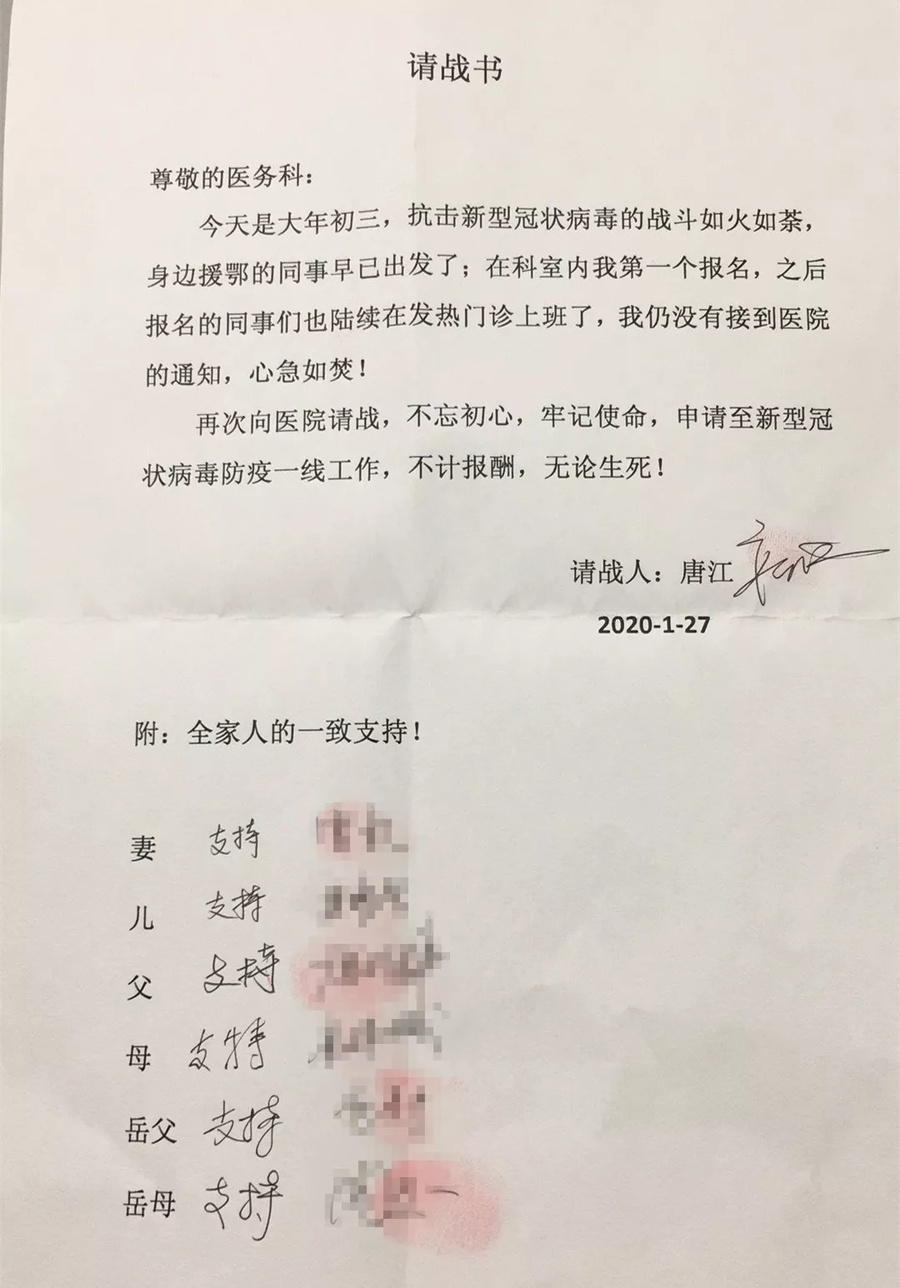 请战书
尊敬的医务科：
今天是大年初三，抗击新型冠状病毒的战斗如火如荼，
身边援鄂的同事早已出发了；在科室内我第一个报名，之后
报名的同事们也陆续在发热门诊上班了，我仍没有接到医院
的通知，心急如焚！
再次向医院请战，不忘初心，牢记使命，申请至新型冠
状病毒防疫一线工作，不计报酬，无论生死！
请战人：唐江
2020-1-27
附：全家人的一致支持！
妻 支持
儿 支持
父 支持
母 支持
岳父 支持
岳母 支持